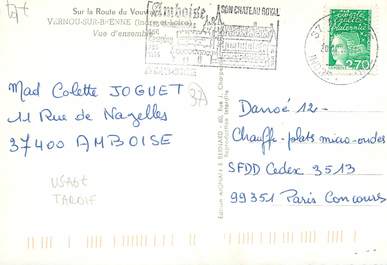 Sur la Route du Vouv
VERNOU-SUR-BRENNE (Indre-et-Loire)
Vue d'ensemble
Amboise
SON CHATEAU ROYAL
2,70
Mad Colette JOGUET
11 Rue de Nazelles
37400 AMBOISE
USAGE
TARDIF
37
Reproduction interdite
Danoé 12 -
Chauffe-plats micro-ondes
SFDD Cedex 3513
99351 Paris Concours